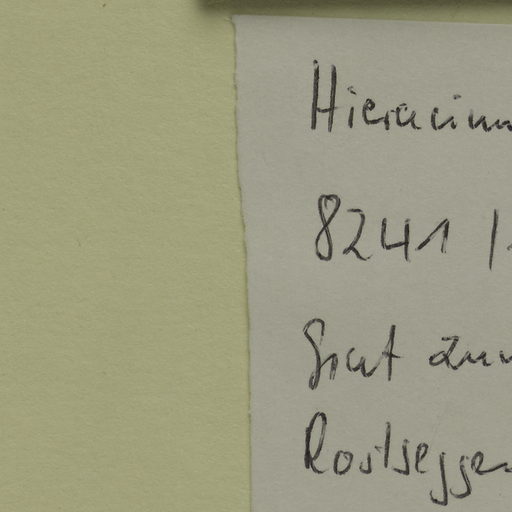 Hieracium
8241 /
Grat zum
Rostseggen